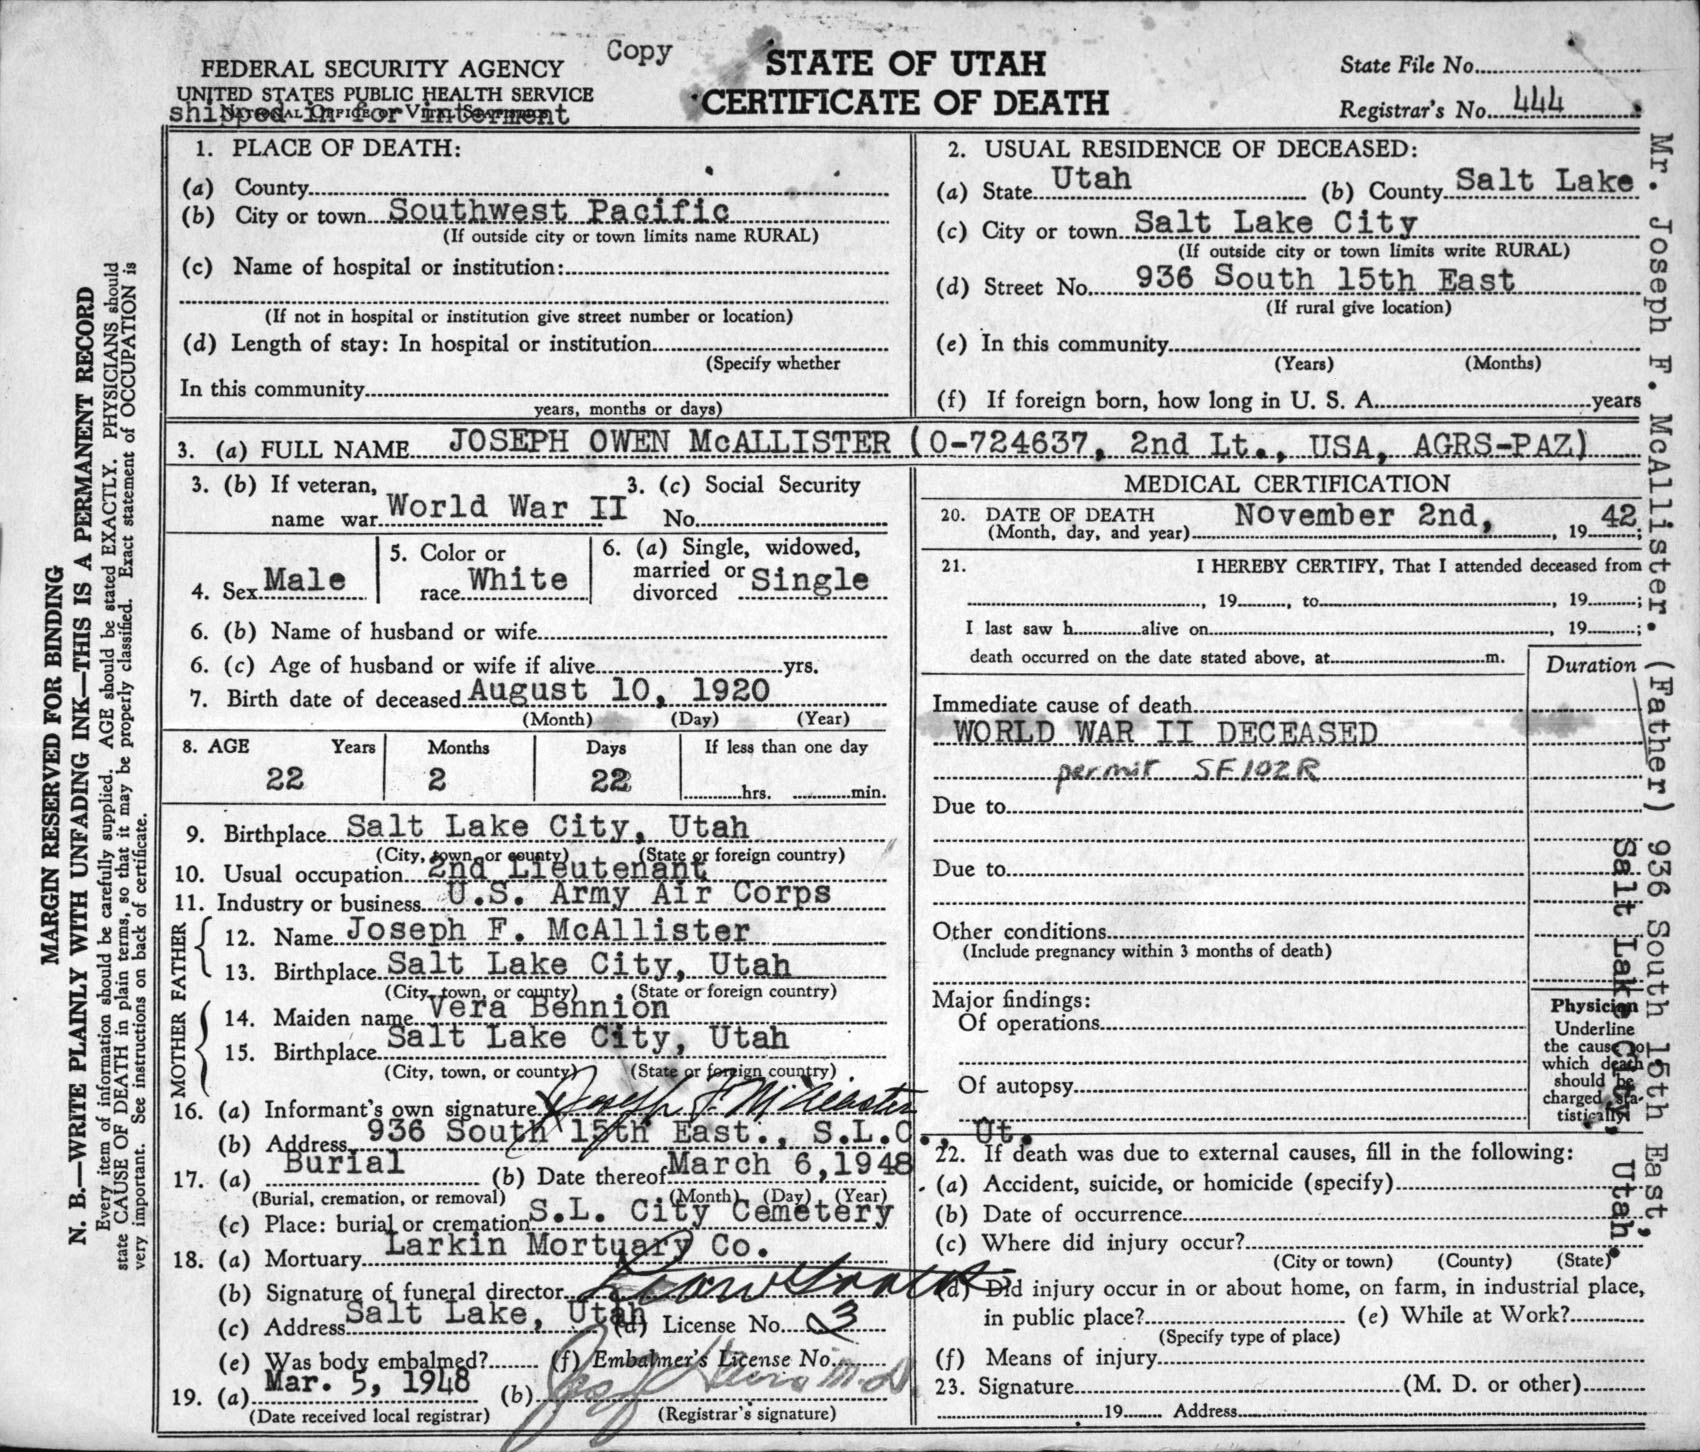 Copy
FEDERAL SECURITY AGENCY
UNITED STATES PUBLIC HEALTH SERVICE
NATIONAL OFFICE OF VITAL STATISTICS
shipped in for interment
STATE OF UTAH
CERTIFICATE OF DEATH
State File No.
Registrar's No. 444
1. PLACE OF DEATH:
(a) County
(b) City or town Southwest Pacific
(If outside city or town limits name RURAL)
(c) Name of hospital or institution:
(If not in hospital or institution give street number or location)
(d) Length of stay: In hospital or institution
(Specify whether
In this community
years, months or days)
2. USUAL RESIDENCE OF DECEASED:
(a) State Utah (b) County Salt Lake
(c) City or town Salt Lake City
(If outside city or town limits write RURAL)
(d) Street No. 936 South 15th East
(If rural give location)
(e) In this community
(Years) (Months)
(f) If foreign born, how long in U. S. A. years
3. (a) FULL NAME JOSEPH OWEN McALLISTER (O-724637, 2nd Lt., USA, AGRS-PAZ)
3. (b) If veteran, name war World War II 3. (c) Social Security No.
4. Sex Male 5. Color or race White 6. (a) Single, widowed, married or divorced Single
6. (b) Name of husband or wife
6. (c) Age of husband or wife if alive yrs.
7. Birth date of deceased August 10, 1920
(Month) (Day) (Year)
8. AGE Years Months Days If less than one day
22 2 22 hrs. min.
9. Birthplace Salt Lake City, Utah
(City, town, or county) (State or foreign country)
10. Usual occupation 2nd Lieutenant
11. Industry or business U.S. Army Air Corps
FATHER
12. Name Joseph F. McAllister
13. Birthplace Salt Lake City, Utah
(City, town, or county) (State or foreign country)
MOTHER
14. Maiden name Vera Bennion
15. Birthplace Salt Lake City, Utah
(City, town, or county) (State or foreign country)
16. (a) Informant's own signature X Joseph F McAllister
(b) Address 936 South 15th East., S.L.C., Ut.
17. (a) Burial (b) Date thereof March 6, 1948
(Burial, cremation, or removal) (Month) (Day) (Year)
(c) Place: burial or cremation S.L. City Cemetery
18. (a) Mortuary Larkin Mortuary Co.
(b) Signature of funeral director
(c) Address Salt Lake, Utah (d) License No. 3
(e) Was body embalmed? (f) Embalmer's License No.
19. (a) Mar. 5, 1948 (b) M.D.
(Date received local registrar) (Registrar's signature)
MEDICAL CERTIFICATION
20. DATE OF DEATH November 2nd, 19 42;
(Month, day, and year)
21. I HEREBY CERTIFY, That I attended deceased from
, 19 , to , 19 ;
I last saw h alive on , 19 ;
death occurred on the date stated above, at m.
Duration
Immediate cause of death
WORLD WAR II DECEASED
permit SF102R
Due to
Due to
Other conditions
(Include pregnancy within 3 months of death)
Major findings:
Of operations
Of autopsy
Physician
Underline
the cause to
which death
should be
charged sta-
tistically
22. If death was due to external causes, fill in the following:
(a) Accident, suicide, or homicide (specify)
(b) Date of occurrence
(c) Where did injury occur?
(City or town) (County) (State)
(d) Did injury occur in or about home, on farm, in industrial place,
in public place? (e) While at Work?
(Specify type of place)
(f) Means of injury
23. Signature (M. D. or other)
19 Address
MARGIN RESERVED FOR BINDING
N. B.—WRITE PLAINLY WITH UNFADING INK—THIS IS A PERMANENT RECORD
Every item of information should be carefully supplied. AGE should be stated EXACTLY. PHYSICIANS should
state CAUSE OF DEATH in plain terms, so that it may be properly classified. Exact statement of OCCUPATION is
very important. See instructions on back of certificate.
Mr. Joseph F. McAllister. (Father) 936 South 15th East,
Salt Lake City, Utah.